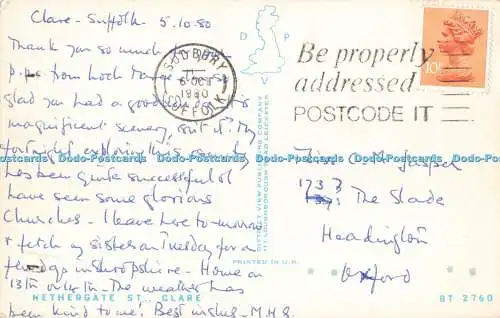 Clare - Suffolk 5.10.80
Thank you so much for
p.c. from Loch
glad you had a good
magnificent scenery, isn't it? My
fortnight exploring this county
has been quite successful &
have seen some glorious
Churches - I leave here to-morrow
& fetch my sister on Tuesday for a
few days in Shropshire - Home on
13th or 14th - The weather has
been kind to me! Best wishes - M.H.S.
NETHERGATE ST., CLARE
D P
V
SUDBURY
6 OCT
1980
SUFFOLK
Be properly
addressed
POSTCODE IT
PRINTED IN U.K.
The Slade
Headington
Oxford
BT 2760
Dodo-Postcards Dodo-Postcards Dodo-Postcards Dodo-Postcards Dodo-Postcards Dodo-Postcards